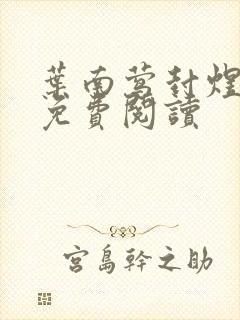 葉南莺封煜
免費閱讀
宮島幹之助